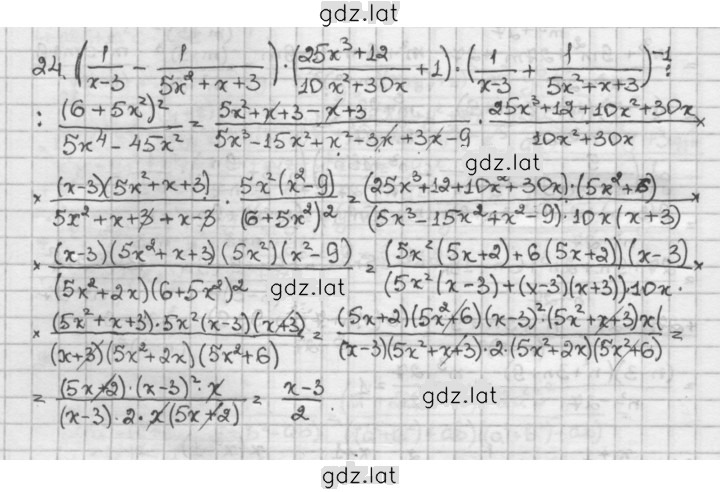 gdz.lat
24. (1/(x-3) - 1/(5x²+x+3)) · ((25x³+12)/(10x²+30x) + 1) · (1/(x-3) + 1/(5x²+x+3))⁻¹ :
: (6+5x²)²/(5x⁴-45x²) = (5x²+x+3-x+3)/(5x³-15x²+x²-3x+3x-9) · (25x³+12+10x²+30x)/(10x²+30x) ×
gdz.lat
× (x-3)(5x²+x+3)/(5x²+x+3+x-3) · 5x²(x²-9)/(6+5x²)² = (25x³+12+10x²+30x)·(5x²+6)/((5x³-15x²+x²-9)·10x(x+3)) ×
× (x-3)(5x²+x+3)(5x²)(x²-9)/((5x²+2x)(6+5x²)²) = (5x²(5x+2)+6(5x+2))(x-3)/((5x²(x-3)+(x-3)(x+3))·10x· ×
gdz.lat
× (5x²+x+3)·5x²(x-3)(x+3)/((x+3)(5x²+2x)(5x²+6)) = (5x+2)(5x²+6)(x-3)²(5x²+x+3)x(/((x-3)(5x²+x+3)·2·(5x²+2x)(5x²+6)) =
= (5x+2)·(x-3)²·x/((x-3)·2·x(5x+2)) = (x-3)/2
gdz.lat
gdz.lat